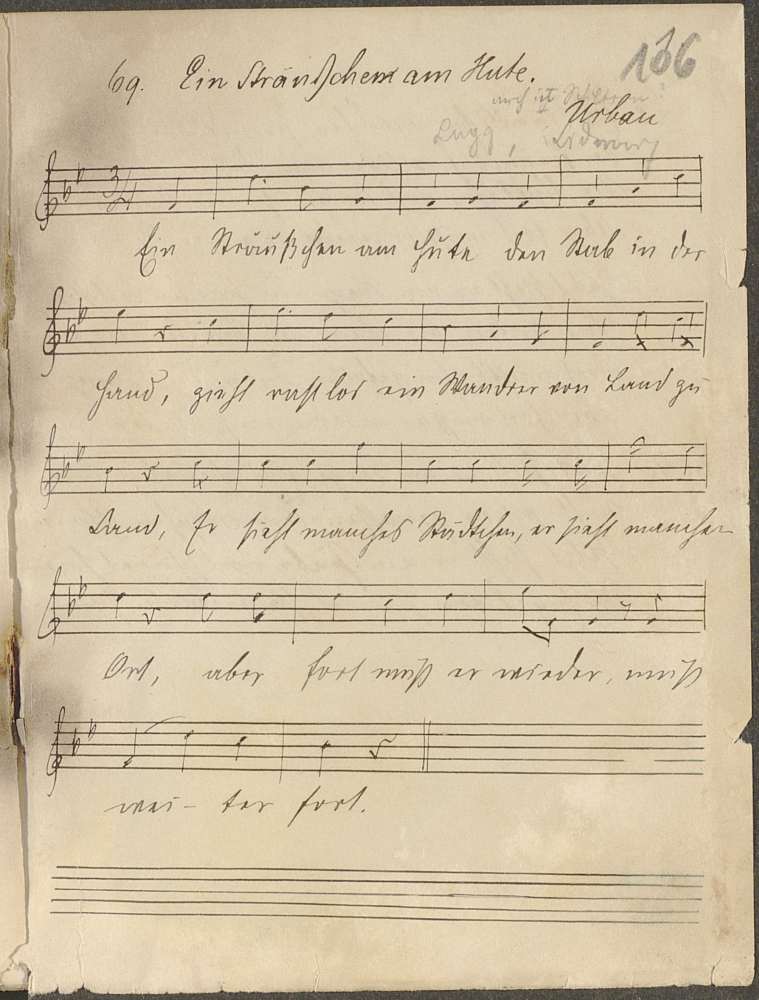 69. Ein Sträußchen am Hute.
166
auch ist
Urban
Ein Sträußchen am Hute den Stab in der
Hand, zieht rastlos ein Wandrer von Land zu
Land, Er sieht manches Städtchen, er sieht manchen
Ort, aber fort muß er wieder, muß
wei- ter fort.